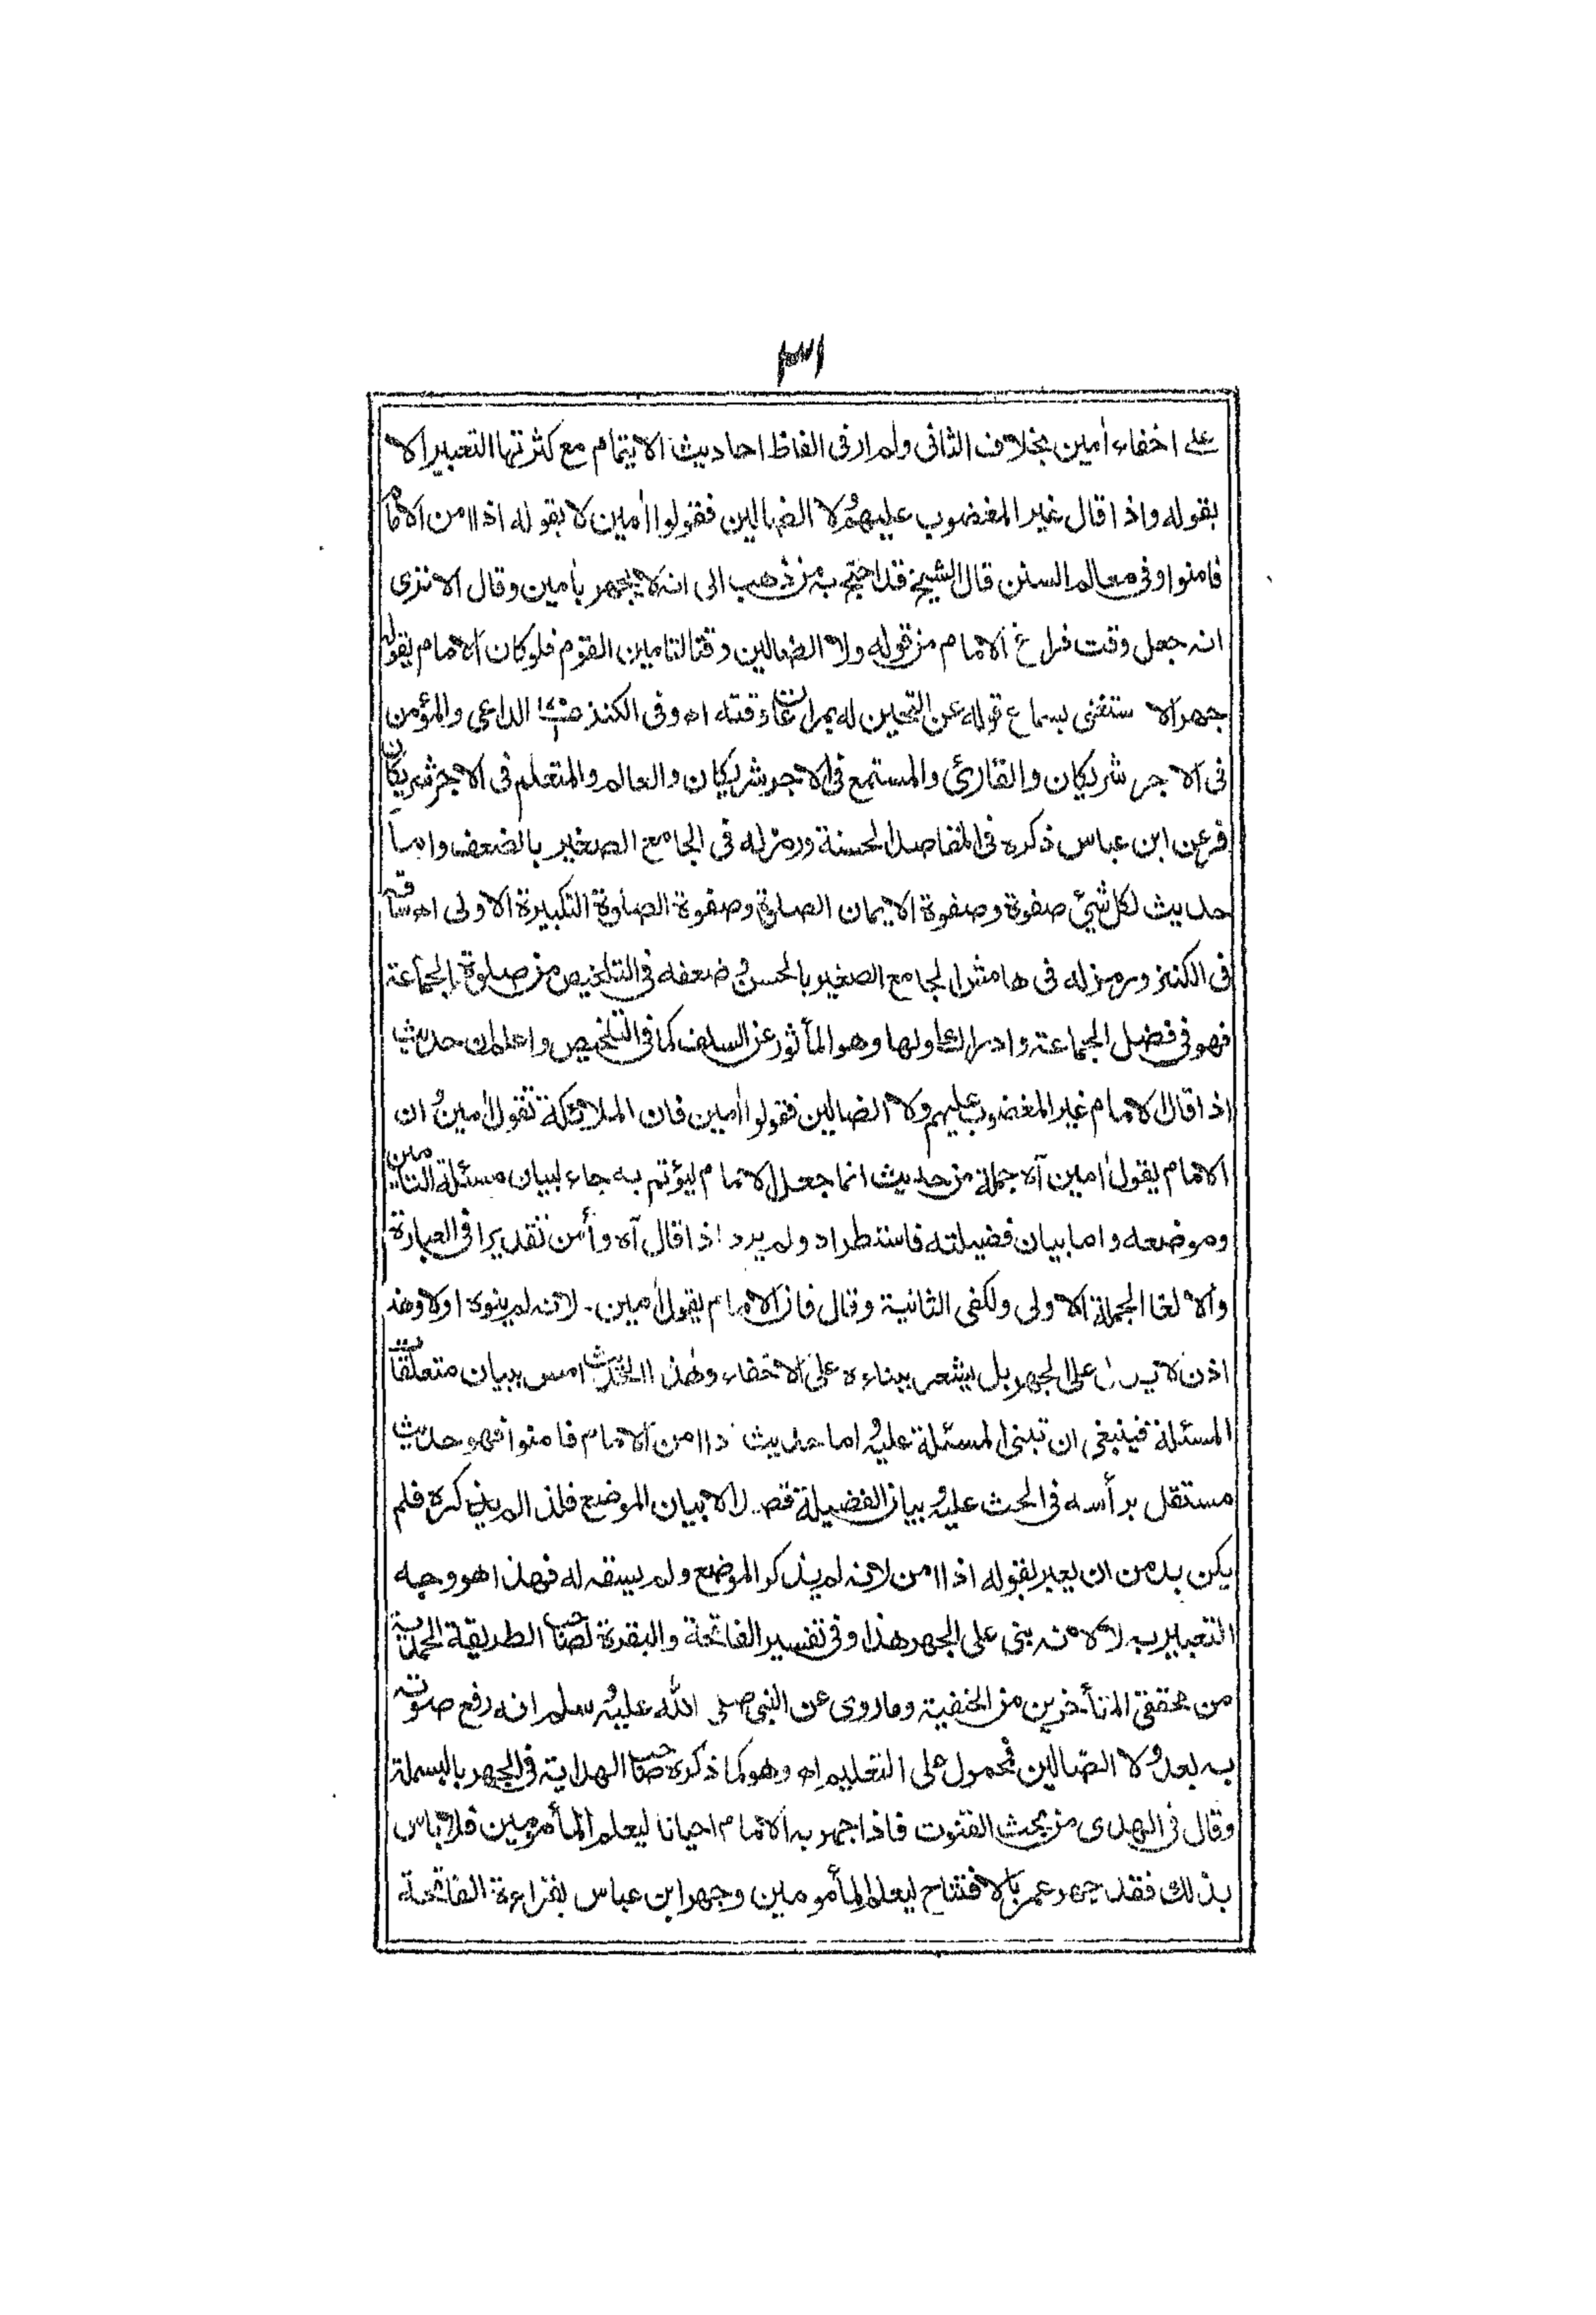 ٣١
على اخفاء اٰمين بخلاف الثانى ولم ار فى الفاظ احاديث الايتمام مع كثرتها التعبير الا
بقوله واذا قال غير المغضوب عليهم ولا الضالين فقولوا اٰمين لا بقوله اذا امن الامام
فامنوا وفى معالم السنن قال الشيخ قد احتج به من ذهب الى انه لا يجهر باٰمين وقال الا ترى
انه جعل وقت فراغ الامام من قوله ولا الضالين وقتا لتامين القوم فلو كان الامام يقوله
جهرا لاستغنى بسماع قوله عن التحين له بمراعاة وقته اھ وفى الكنز الداعى والمؤمن
فى الاجر شريكان والقارئ والمستمع فى الاجر شريكان والعالم والمتعلم فى الاجر شريكان
فر عن ابن عباس ذكره فى المقاصد الحسنة ورمز له فى الجامع الصغير بالضعف واما
حديث لكل شئ صفوة وصفوة الايمان الصلوة وصفوة الصلوة التكبيرة الاولى اھ ساقه
فى الكنز ورمز له فى هامش الجامع الصغير بالحسن وضعفه فى التلخيص من صلوة الجماعة
فهو فى فضل الجماعة وادراك اولها وهو المأثور عن السلف كما فى التلخيص واعلم ان حديث
اذا قال الامام غير المغضوب عليهم ولا الضالين فقولوا اٰمين فان الملائكة تقول اٰمين وان
الامام يقول اٰمين آه جملة من حديث انما جعل الامام ليؤتم به جاء لبيان مسئلة التامين
وموضعه واما بيان فضيلته فاستطراد ولم يرد اذا قال آه وأمن تقديرا فى العبارة
والا لغا الجملة الاولى ولكفى الثانية وقال فان الامام يقول اٰمين - لانه لم ينوه اولا وهذ
اذن لا يدل على الجهر بل يشعر ببناءه على الاخفاء وهٰذا الحديث امس ببيان متعلقات
المسئلة فينبغى ان تبنى المسئلة عليه واما حديث اذا امن الامام فامنوا فهو حديث
مستقل برأسه فى الحث عليه وبيان الفضيلة قصدا لا بيان الموضع فلذا لم يذكره فلم
يكن بد من ان يعبر بقوله اذا امن لانه لم يذكر الموضع ولم يسقه له فهذا هو وجه
التعبير به لا لانه بنى على الجهر هذا وفى تفسير الفاتحة والبقرة لصاحب الطريقة المحمدية
من محققى المتأخرين من الحنفية وما روى عن النبى صلى الله عليه وسلم انه رفع صوته
به بعد ولا الضالين فمحمول على التعليم اھ وهو كما ذكره صاحب الهداية فى الجهر بالبسملة
وقال فى الهدى من بحث القنوت فاذا جهر به الامام احيانا ليعلم المأمومين فلا باس
بذلك فقد جهر عمر بالافتتاح ليعلم المأمومين وجهر ابن عباس بقراءة الفاتحة